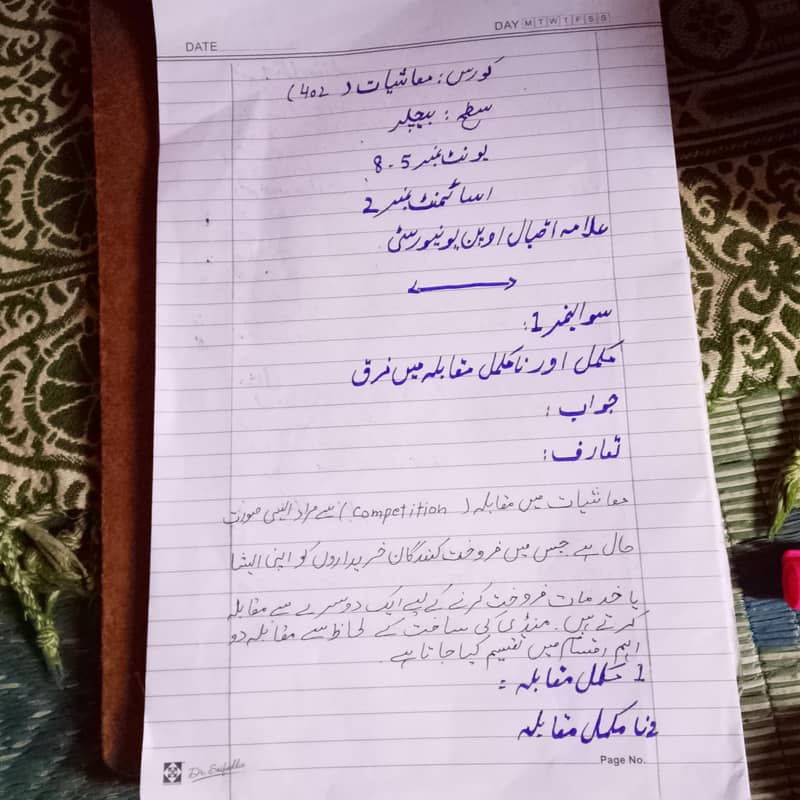 DATE
DAY M T W T F S S
کورس: معاشیات (402)
سطح: بیچلر
یونٹ نمبر 5-8
اسائمنٹ نمبر 2
علامہ اقبال اوپن یونیورسٹی
سوال نمبر 1:
مکمل اور نامکمل مقابلہ میں فرق
جواب:
تعارف:
معاشیات میں مقابلہ (Competition) سے مراد ایسی صورت
حال ہے جس میں فروخت کنندگان خریداروں کو اپنی اشیا
یا خدمات فروخت کرنے کے لیے ایک دوسرے سے مقابلہ
کرتے ہیں۔ منڈی کی ساخت کے لحاظ سے مقابلہ دو
اہم اقسام میں تقسیم کیا جاتا ہے۔
1 مکمل مقابلہ:
2 نا مکمل مقابلہ
Page No.